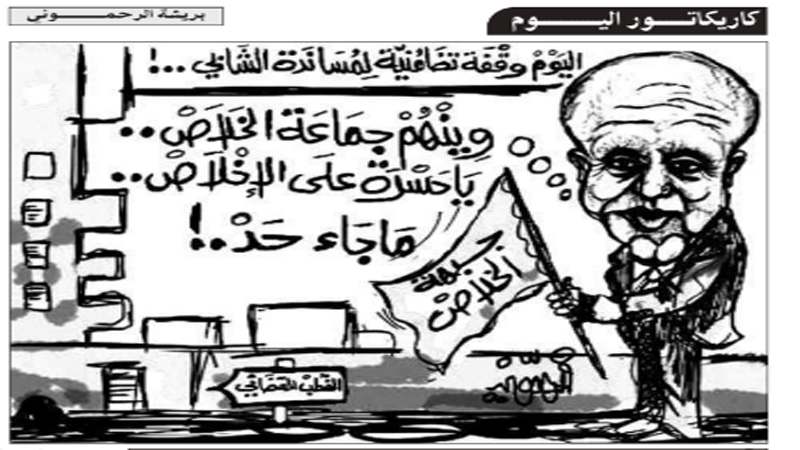 كاريكاتور اليوم
بريشة الرحموني
اليَوْمْ وِقْفَة تضَامُنيّة لِمُسَاندَة الشَّابِّي ...!
وِينْهُمْ جمَاعَة الخَلَاصْ ..
يَا حَسْرَة علَى الإخْلَاصْ ..
مَا جَاء حَدْ ..!
جبهة
الخلاصْ
القطب القضائي